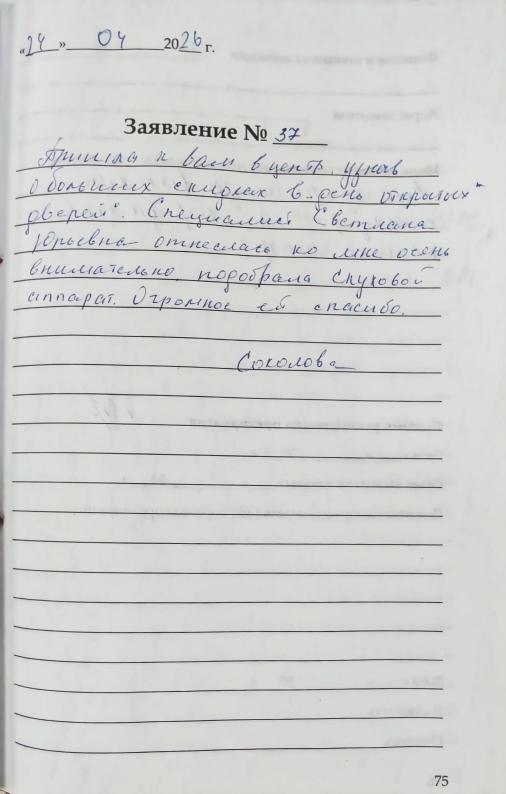 «24» 04 2026 г.
Заявление № 37
Пришла к вам в центр, узнав
о больших скидках в „день открытых"
дверей". Специалист Светлана
Юрьевна отнеслась ко мне очень
внимательно, подобрала слуховой
аппарат. Огромное ей спасибо.
Соколова
75